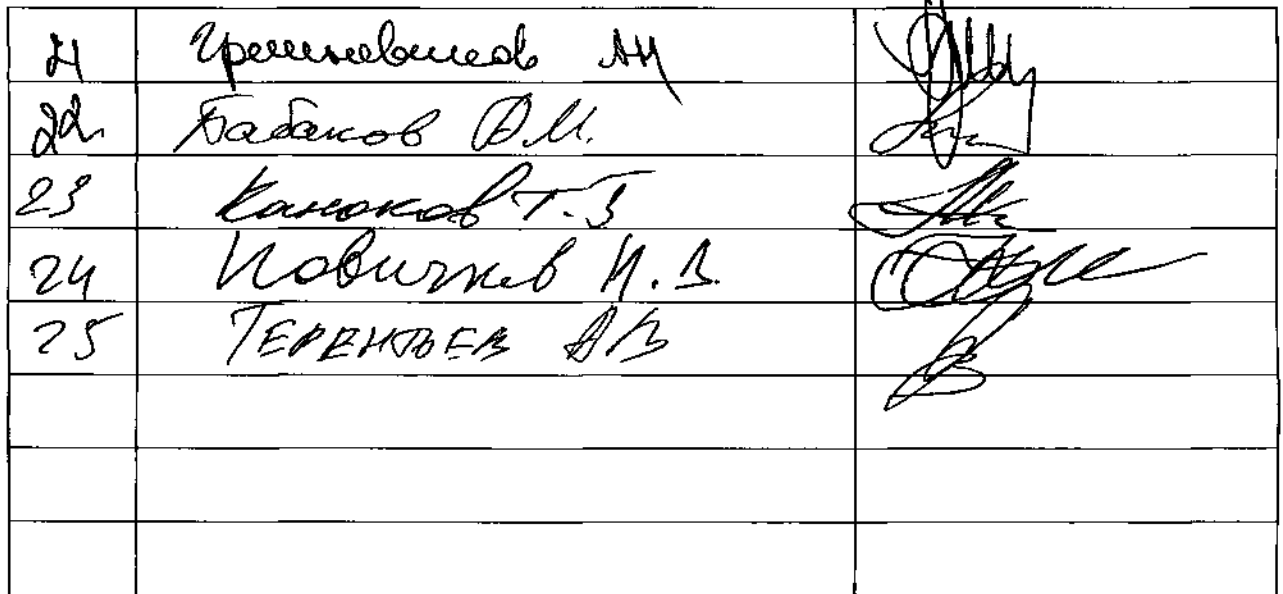 21 Гришневиков АН
22. Бабаков А.М.
23 Каноков Т.З
24 Новичков И.В.
25 ТЕРЕНТЬЕВ АВ